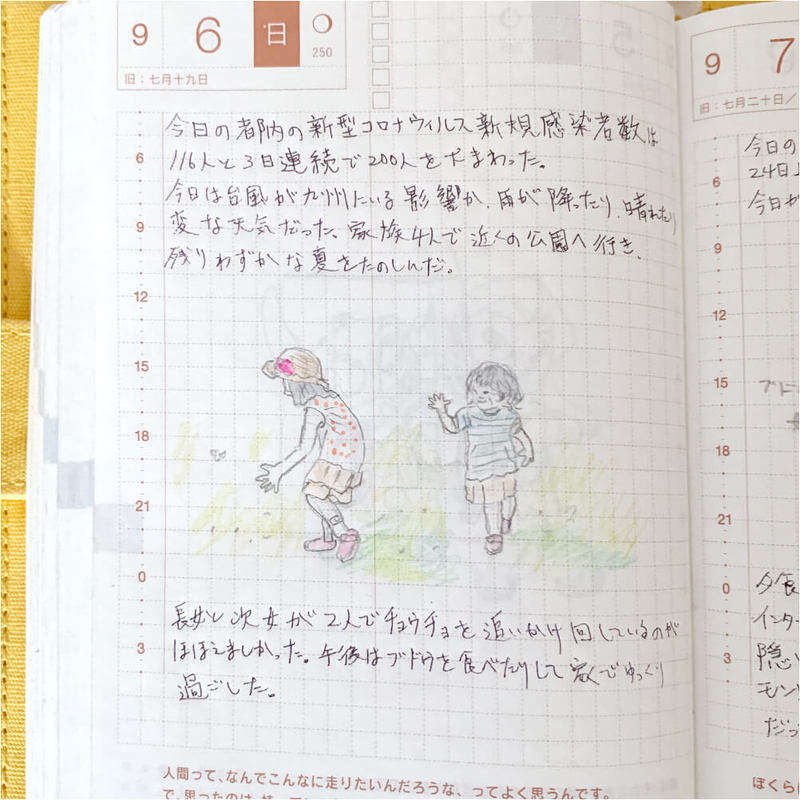 9 6 日
250
旧：七月十九日
今日の都内の新型コロナウィルス新規感染者数は
116人と3日連続で200人を下まわった。
今日は台風が九州にいる影響か、雨が降ったり、晴れたり
変な天気だった。家族4人で近くの公園へ行き、
残りわずかな夏をたのしんだ。
6
9
12
15
18
21
0
3
長女と次女が2人でチョウチョを追いかけ回しているのが
ほほえましかった。午後はブドウを食べたりして家でゆっくり
過ごした。
人間って、なんでこんなに走りたいんだろうな、ってよく思うんです。
で、思ったのは、
9 7
旧：七月二十日／
今日の
24日
今日が
6
9
12
15
18
21
0
3
夕食
インター
隠い
モン
だっ
ぼくら